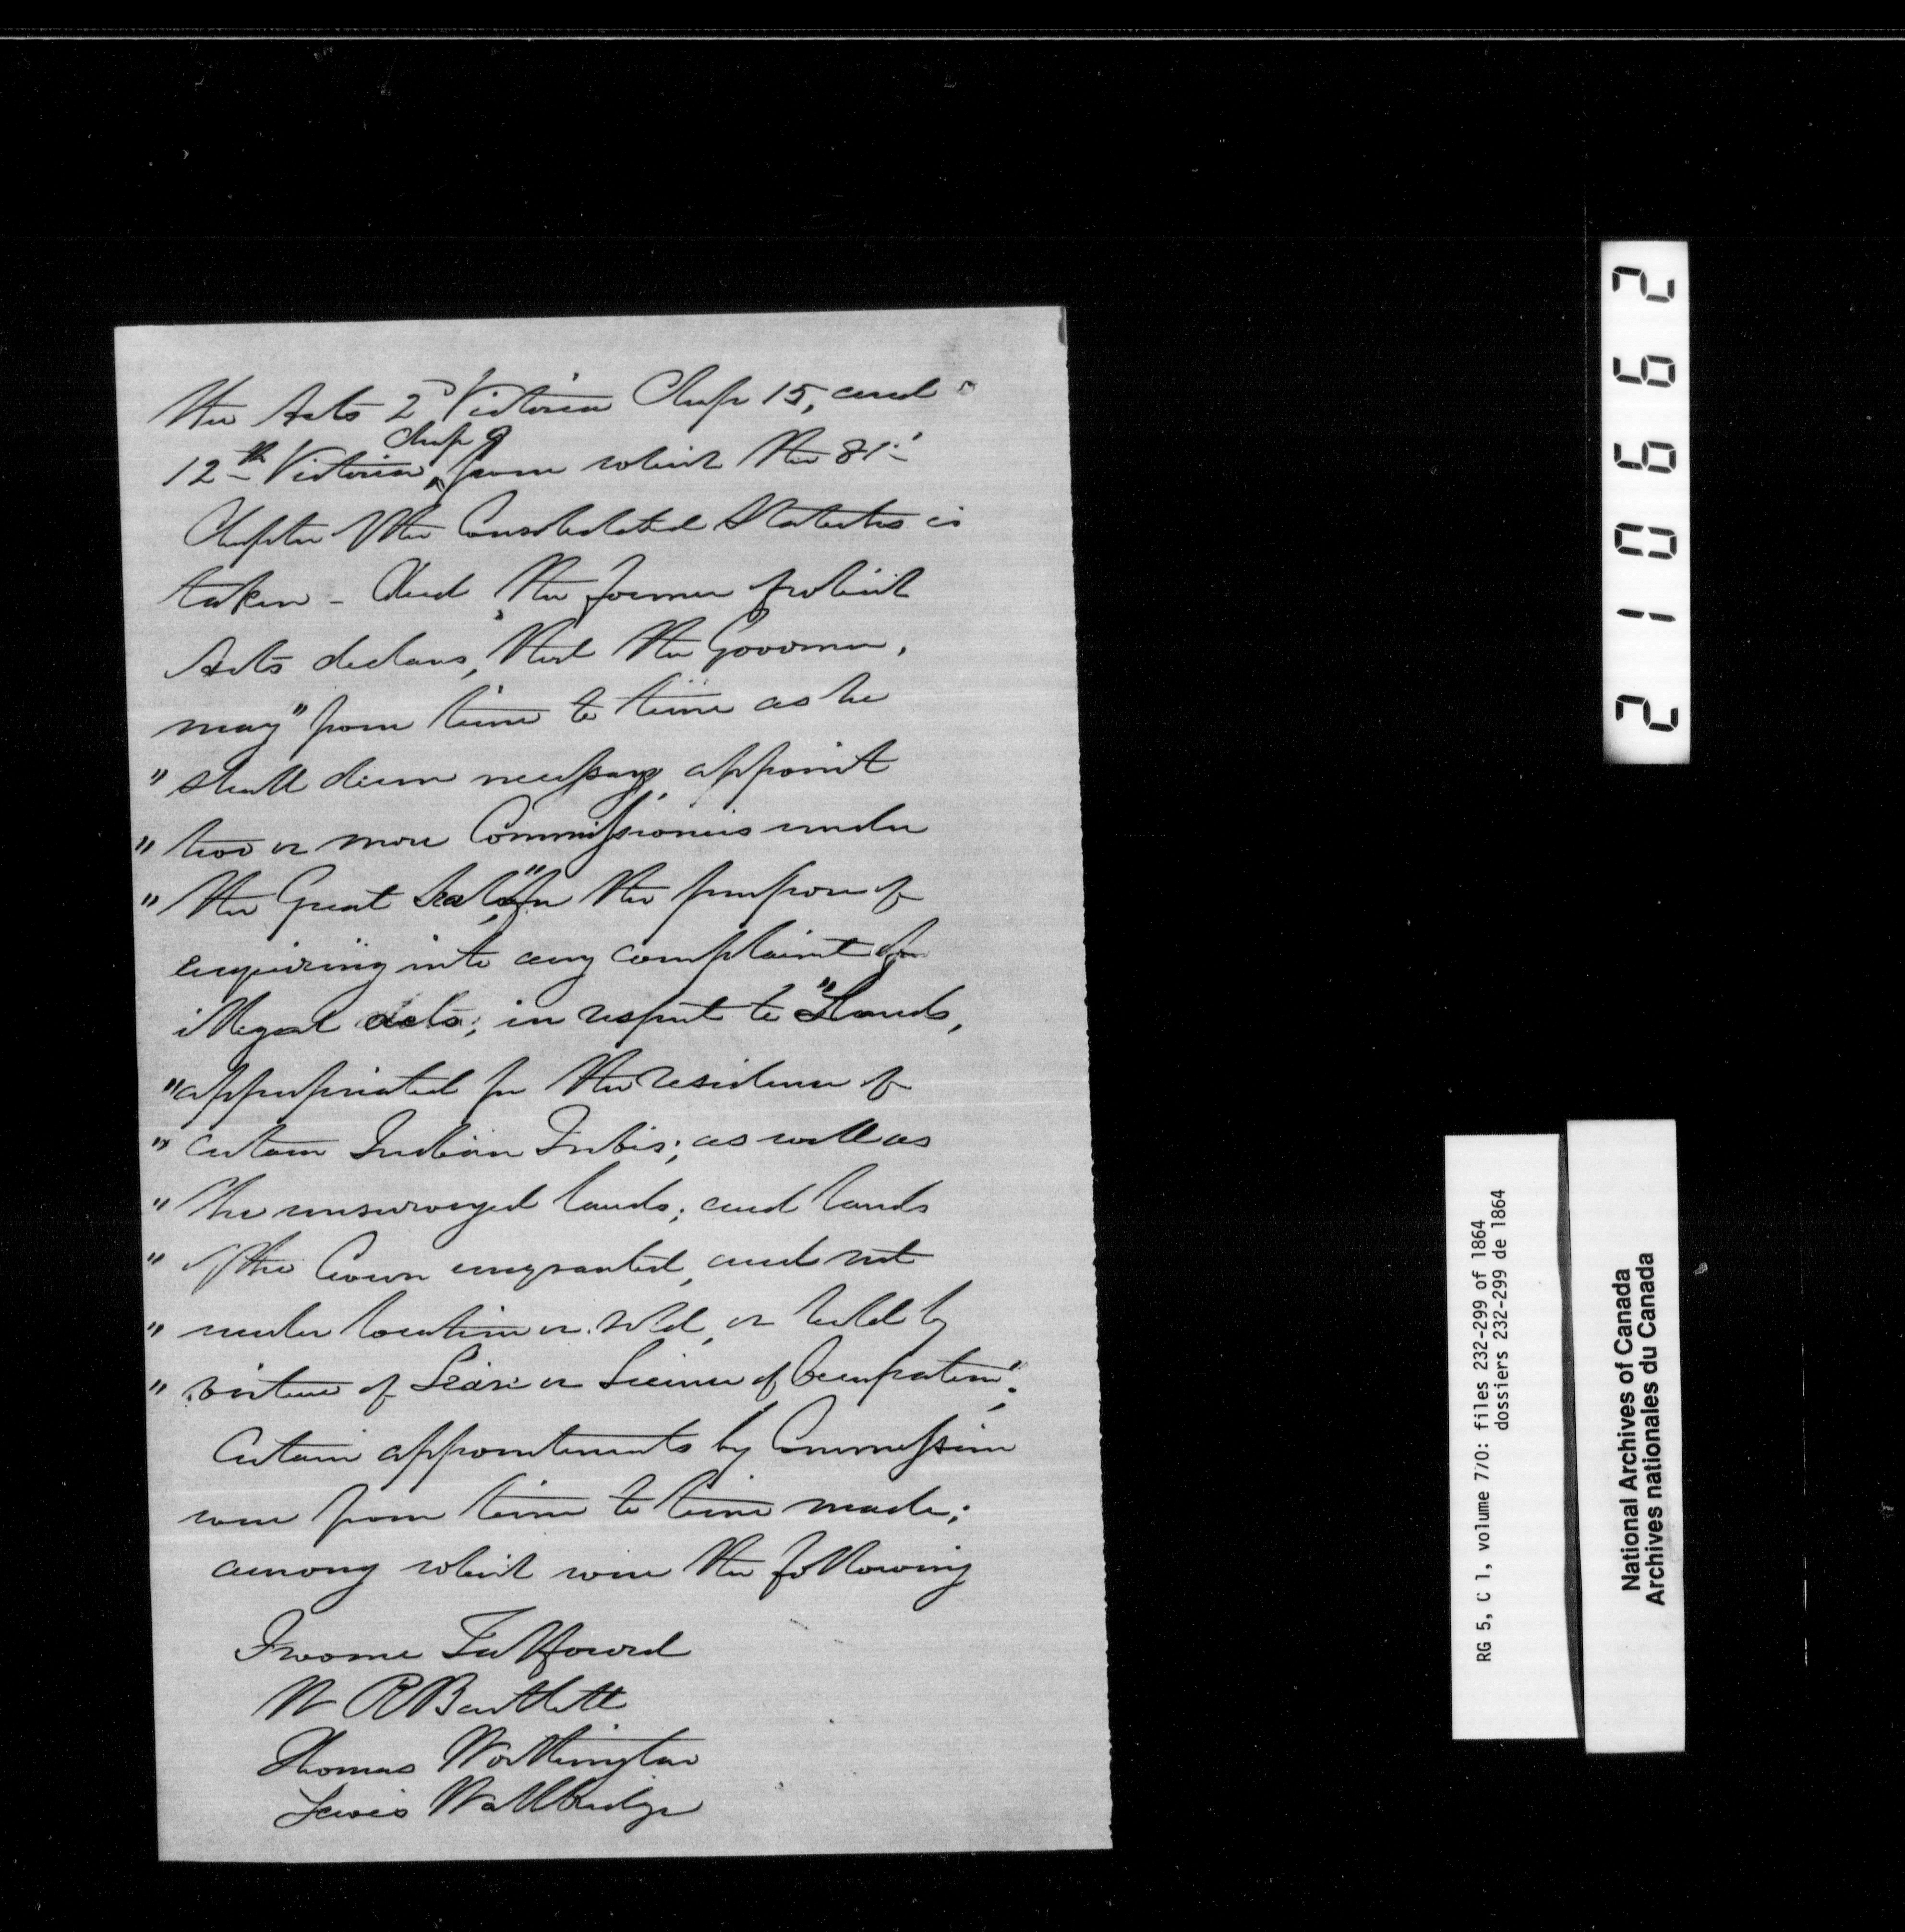 The Acts 2d Victoria Chap 15, and
12th Victoria, Chap 9 from which the 81st
Chapter of the Consolidated Statutes is
taken - And the former of which
Acts declares, that the Governor,
may "from time to time as he
" shall deem necessary, appoint
" two or more Commissioners under
" the Great Seal," for the purpose of
enquiring into any complaint for
illegal acts; in respect to "Lands,
"appropriated for the residence of
" certain Indian Tribes; as well as
" the unsurveyed lands; and lands
" of the Crown ungranted, and not
" under location or sold, or held by
" virtue of Lease or License of Occupation".
Certain appointments by Commission
were from time to time made;
among which were the following
Froome Talfourd
W R Bartlett
Thomas Worthington
Lewis Wallbridge
210662
RG 5, C 1, volume 770: files 232-299 of 1864
dossiers 232-299 de 1864
National Archives of Canada
Archives nationales du Canada